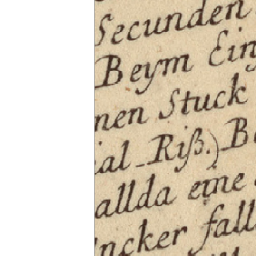 Secunden
Beym Ein
nen Stuck
ial-Riß.) B
allda eine
ncker fall